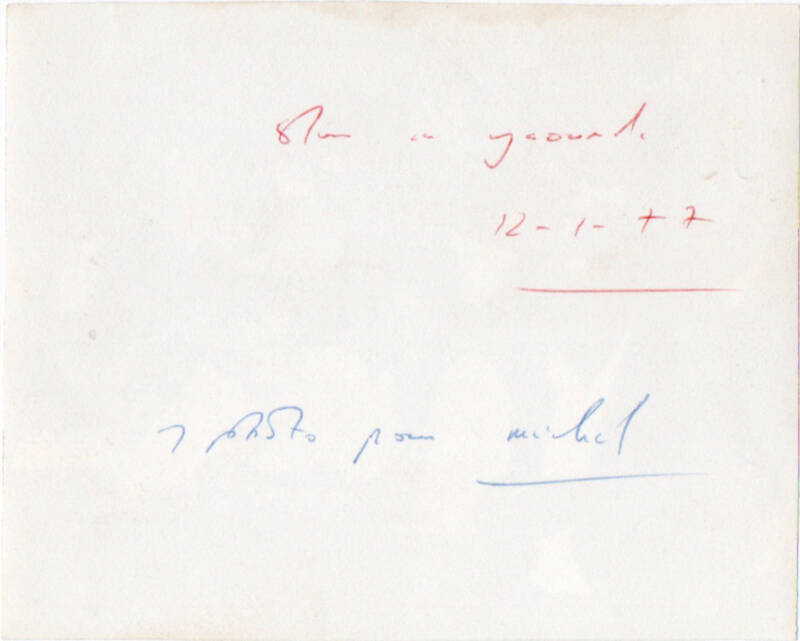 a yaoundé
12-1-77
1 photo pour michel